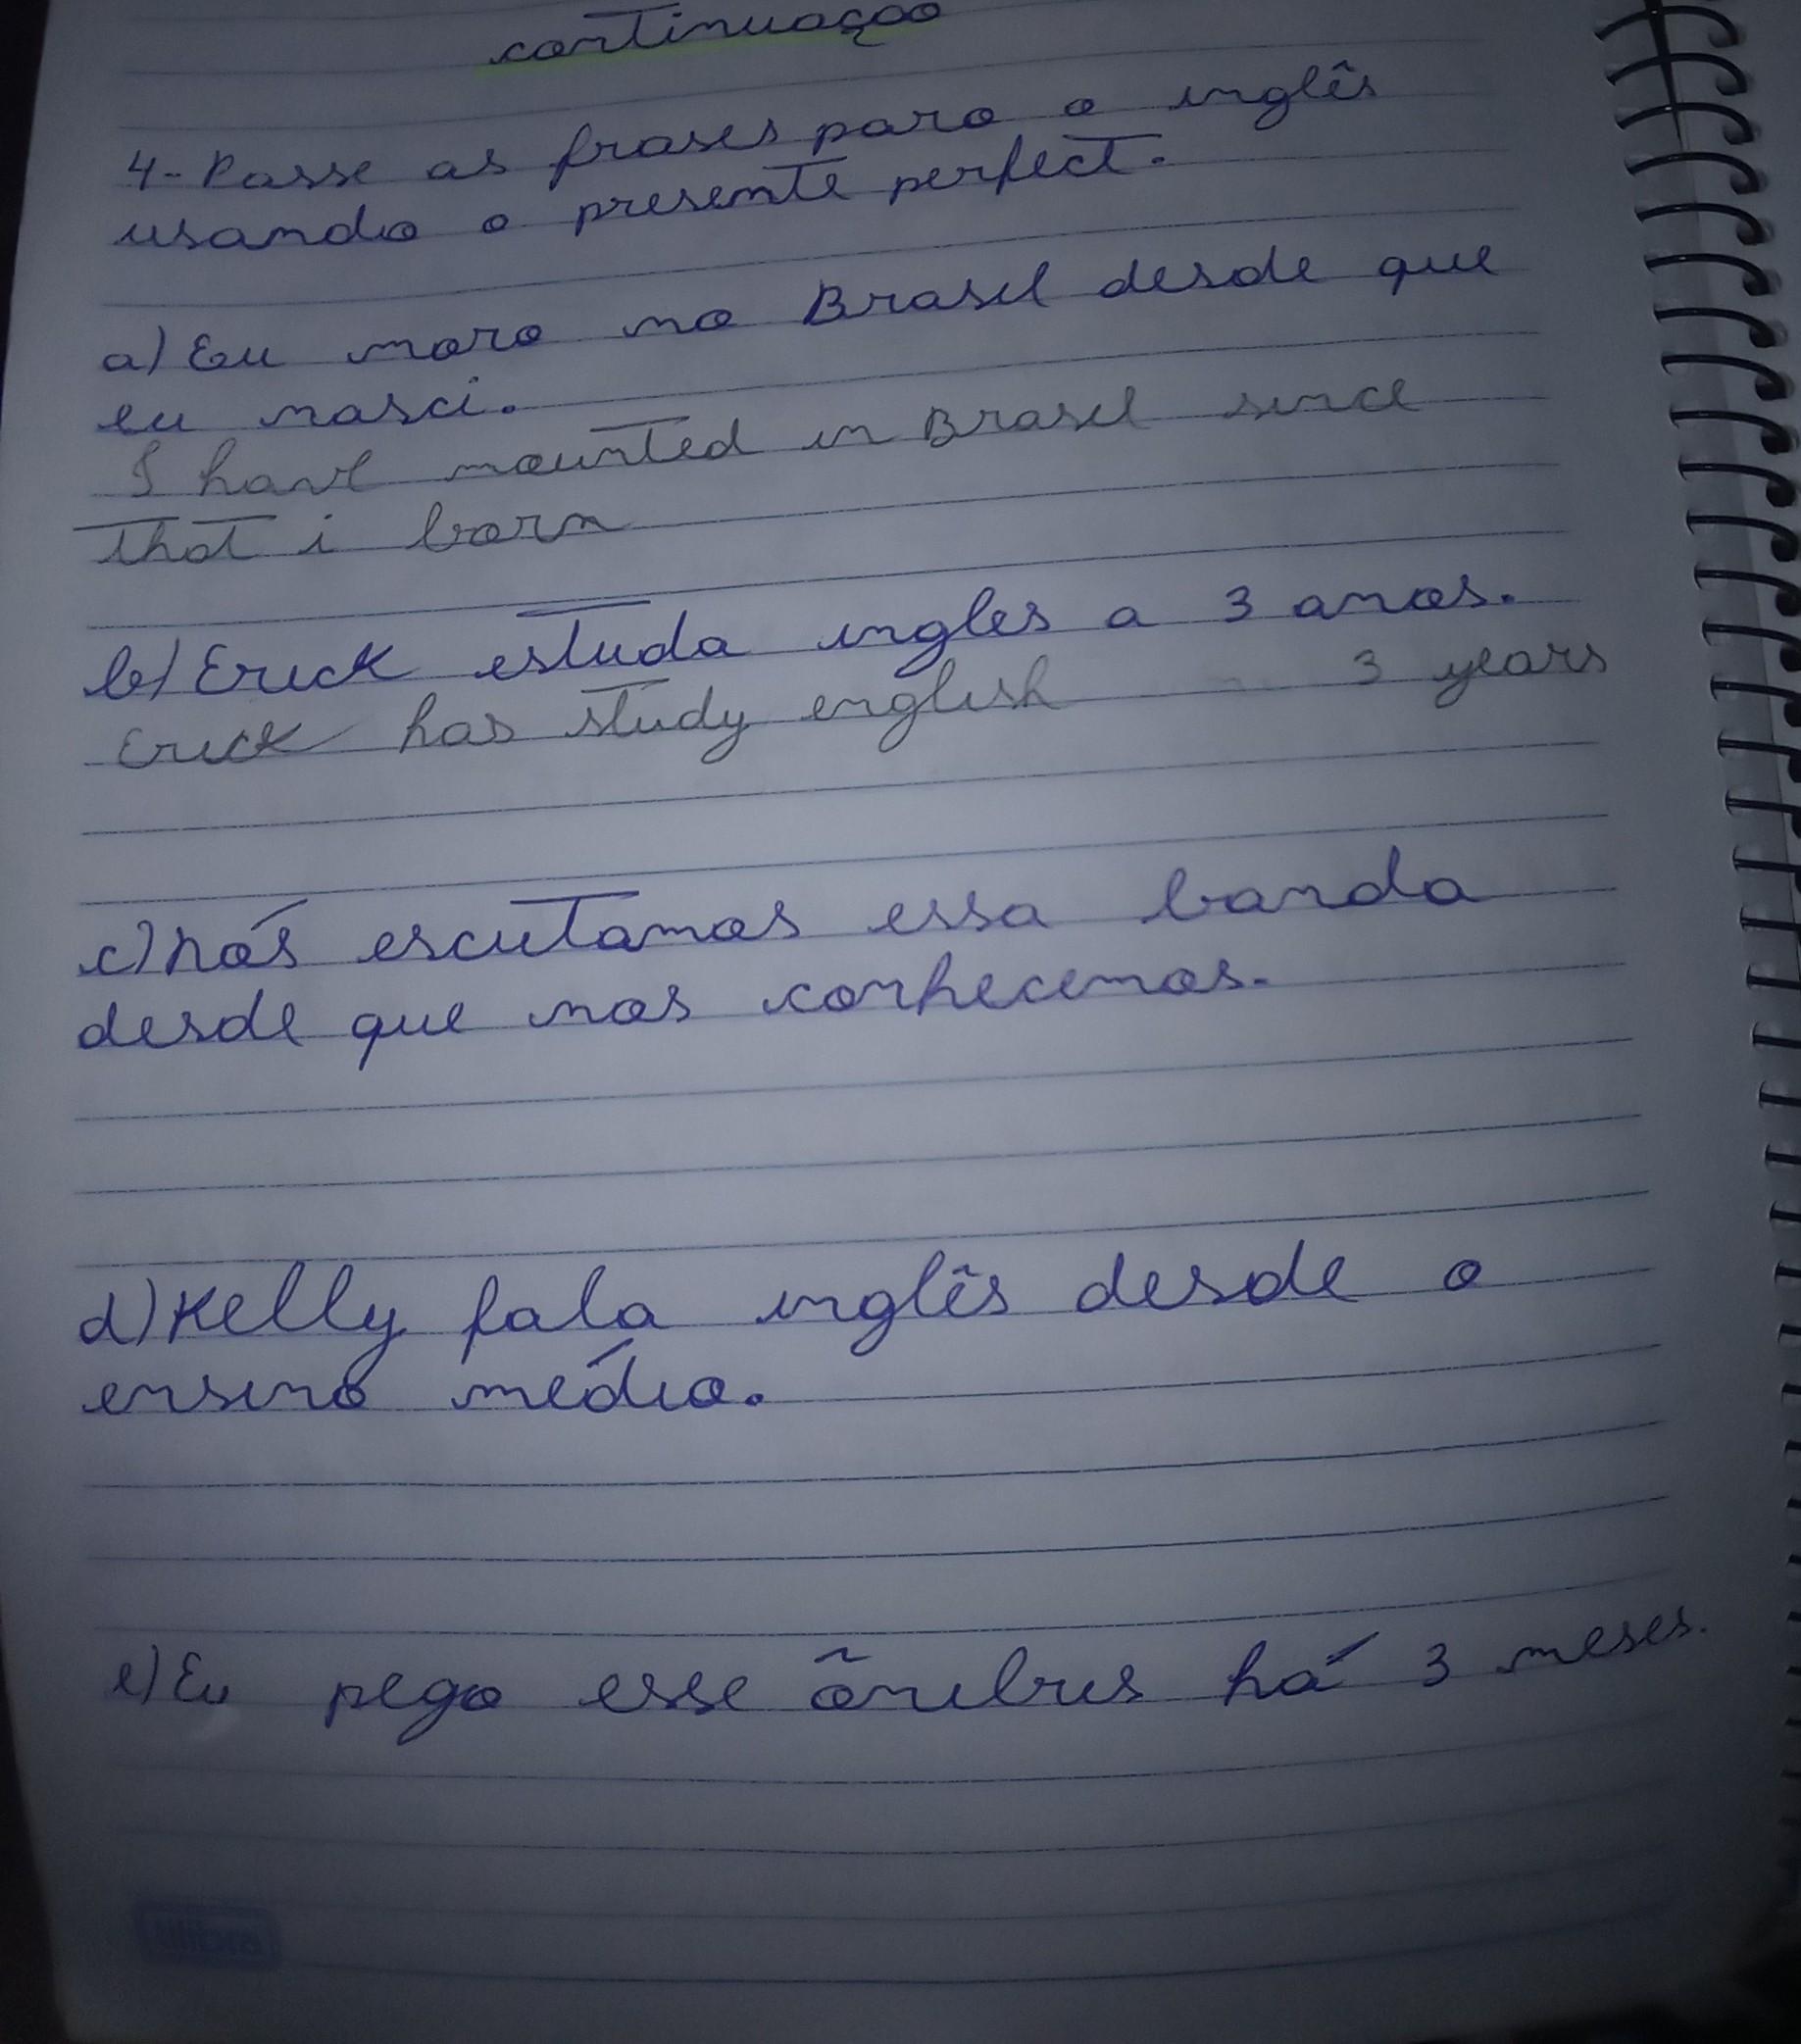 continuaçao
4- Passe as frases para o inglês
usando o presente perfect.
a) Eu moro no Brasil desde que
eu nasci.
I have mounted in Brasil since
that i born
b) Erick estuda ingles a 3 anos.
Erick has study english 3 years
c) nós escutamos essa banda
desde que nos conhecemos.
d) Kelly fala inglês desde o
ensino médio.
e) Eu pego esse ônibus há 3 meses.